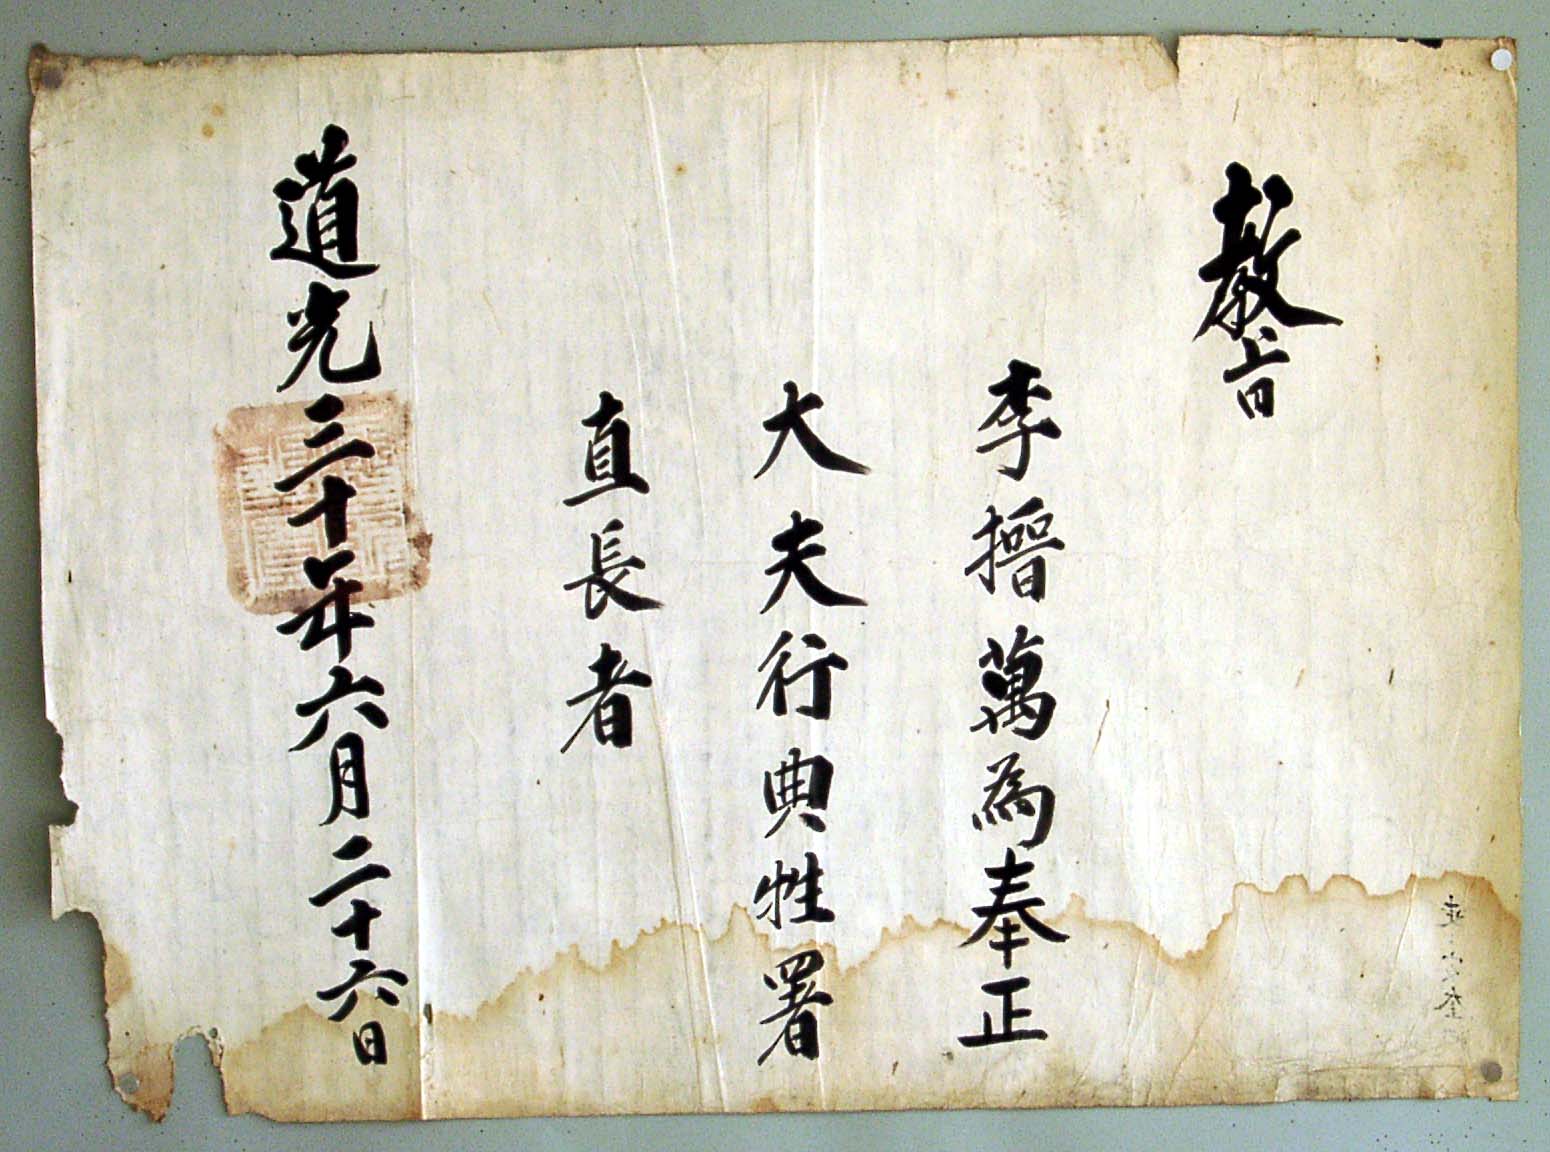 敎旨
李㨔萬為奉正
大夫行典牲署
直長者
道光三十年六月二十六日